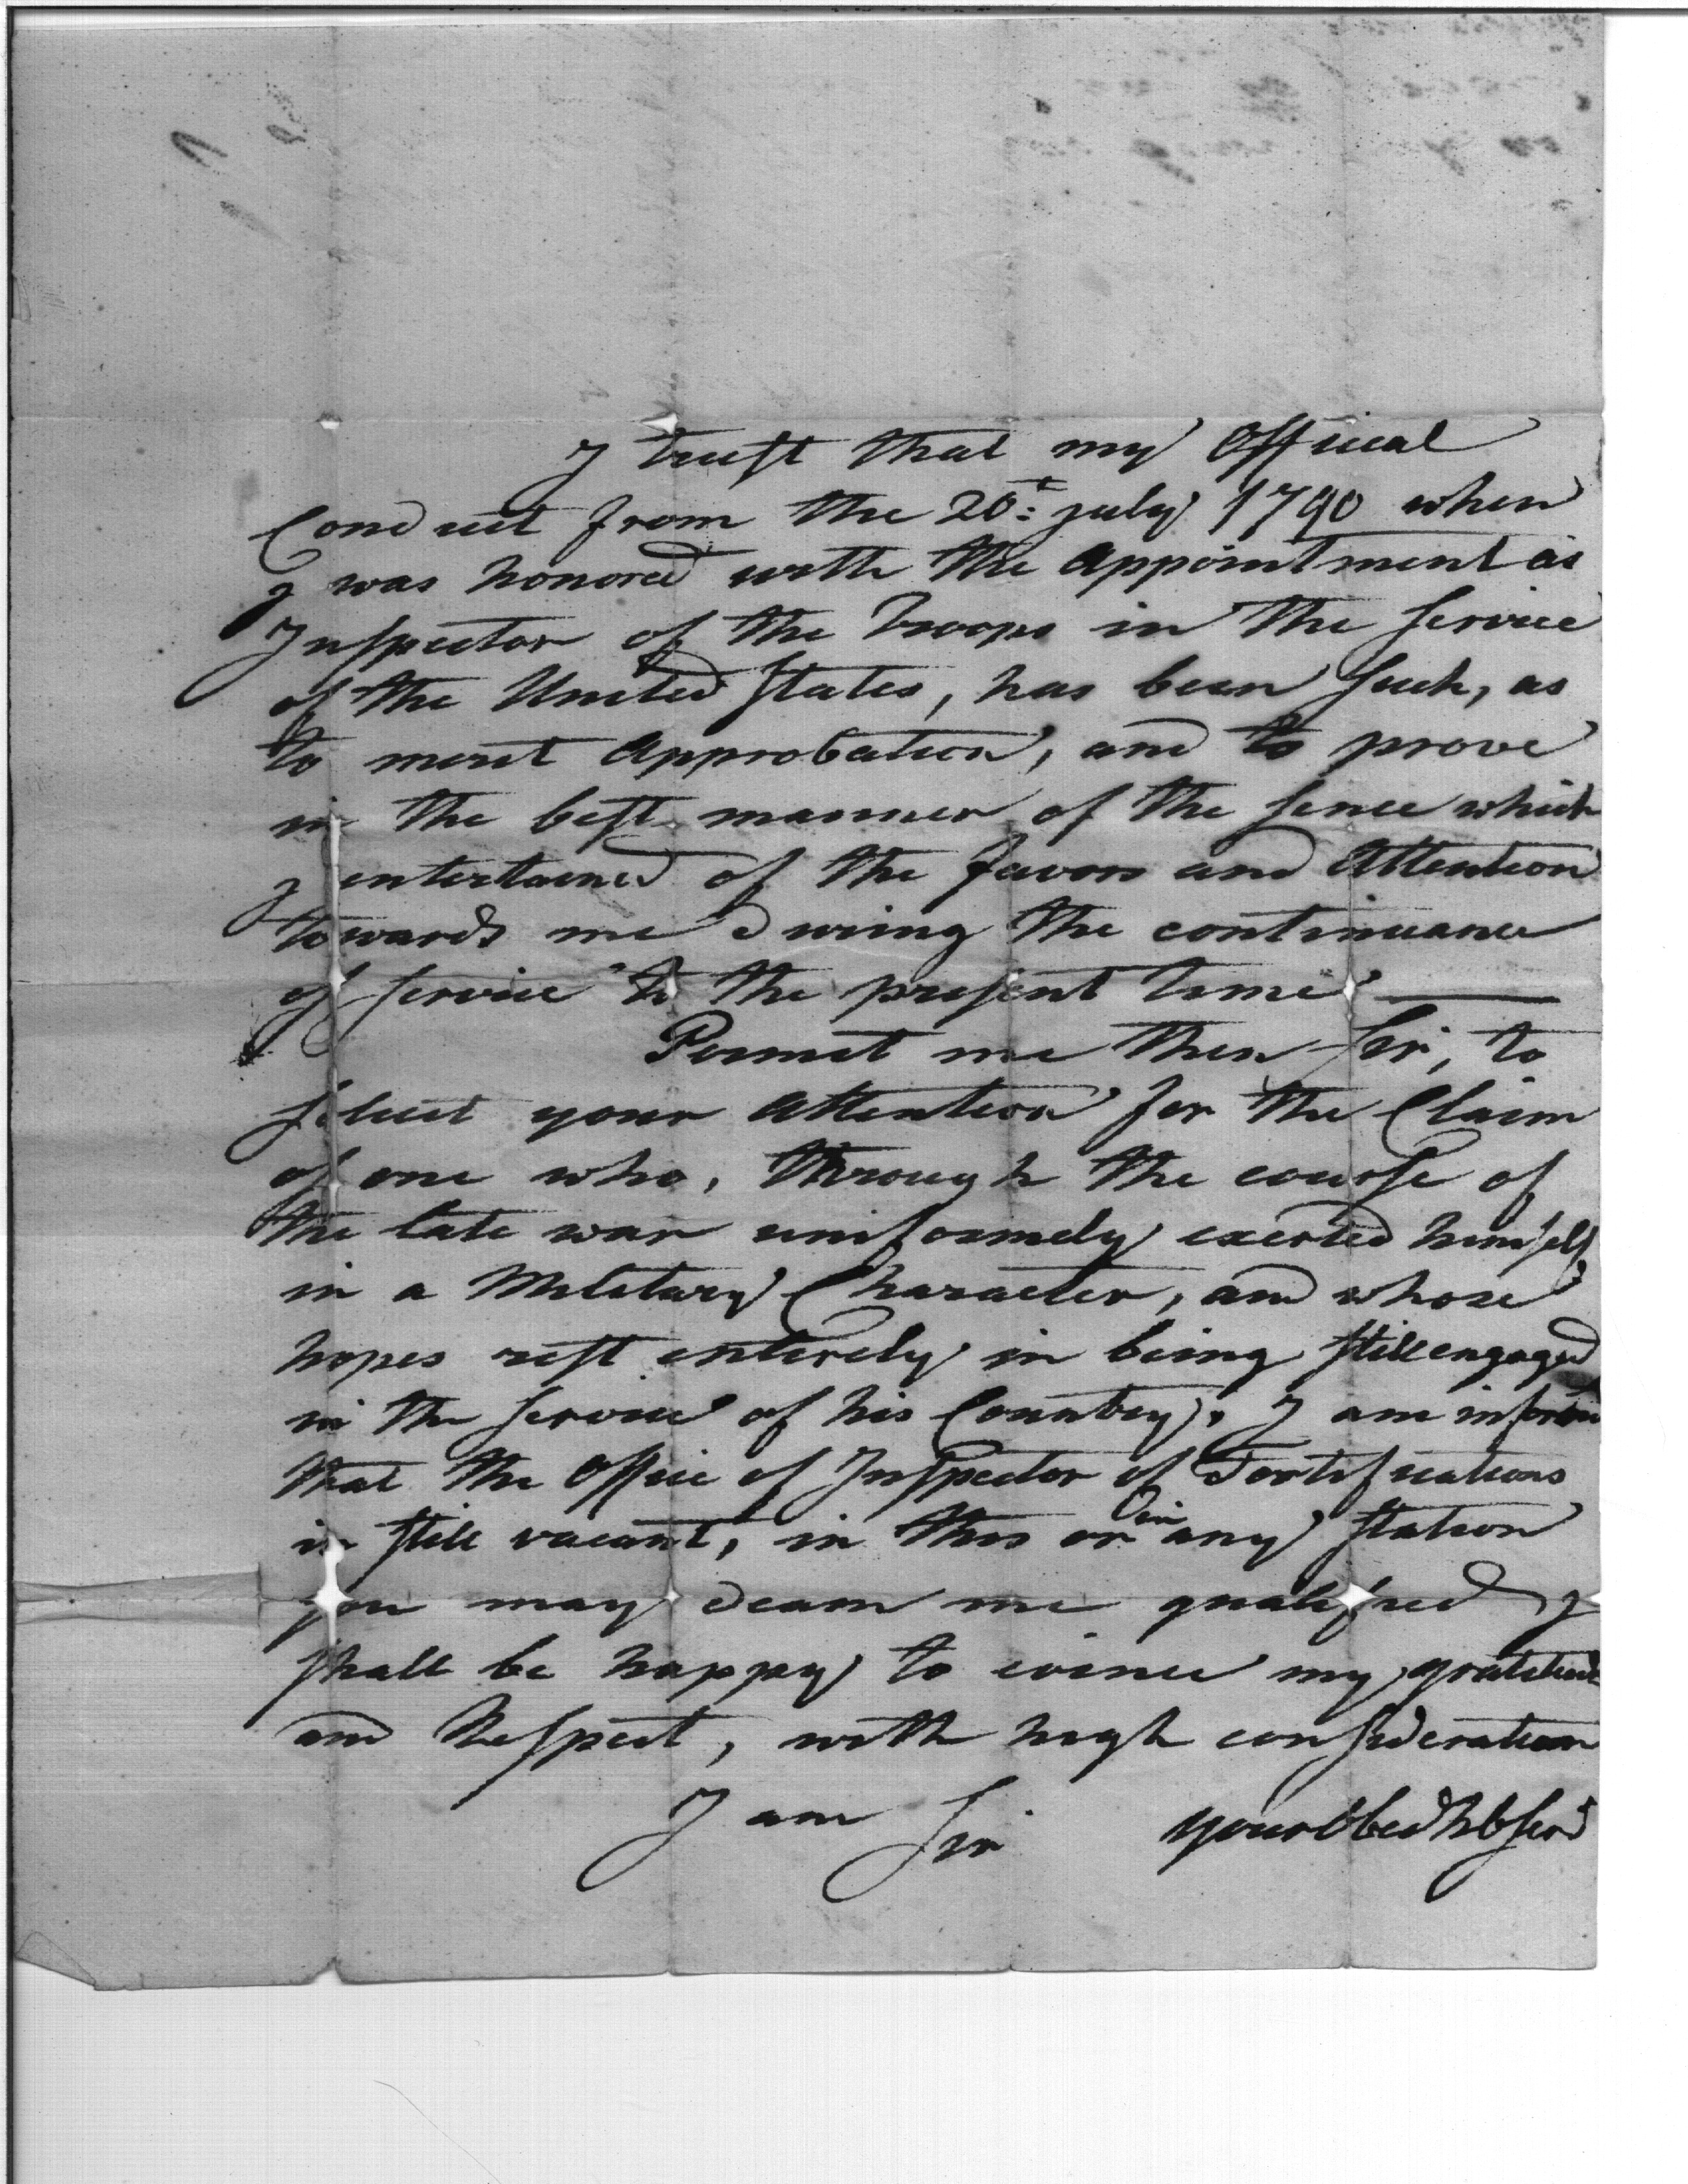 I trust that my Official
Conduct from the 20t: july 1790 when
I was honored with the Appointment as
Inspector of the Troops in the service
of the United States, has been such, as
to merit Approbation, and to prove
in the best manner of the sence which
I entertained of the favors and Attention
towards me during the continuance
of service to the present time
Permit me then Sir, to
solicit your Attention for the Claim
of one who, through the course of
the late war uniformely exerted himself
in a Military Character, and whose
hopes rest entirely in being still engaged
in the service of his Country, I am inform
that the Office of Inspector of Fortifications
is still vacant, in this or in any station
you may deam me qualified I
shall be happy to evince my gratitude
and Respect, with high consideration
I am Sir your Obed Hb Serd